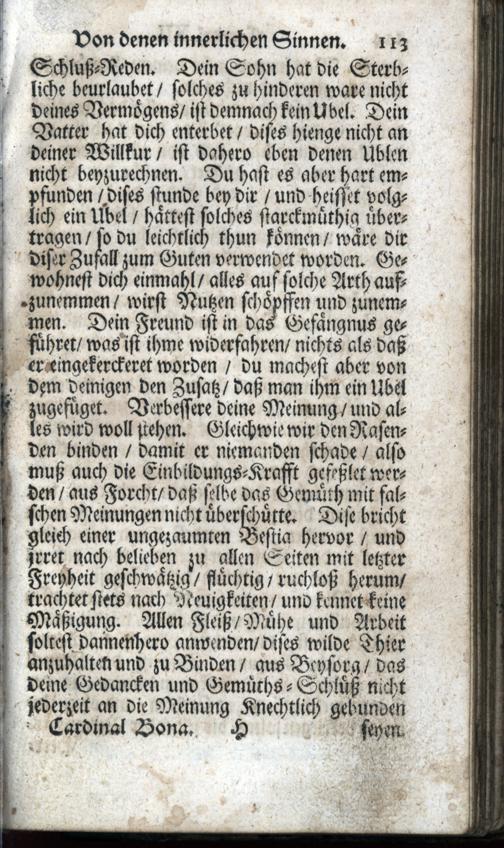 Von denen innerlichen Sinnen. 113
Schluß-Reden. Dein Sohn hat die Sterb-
liche beurlaubet / solches zu hinderen ware nicht
deines Vermögens / ist demnach kein Ubel. Dein
Vatter hat dich enterbet / dises hienge nicht an
deiner Willkur / ist dahero eben denen Ublen
nicht beyzurechnen. Du hast es aber hart em-
pfunden / dises stunde bey dir / und heisset volg-
lich ein Ubel / hättest solches starckmüthig über-
tragen / so du leichtlich thun können / wäre dir
diser Zufall zum Guten verwendet worden. Ge-
wohnest dich einmahl / alles auf solche Arth auf-
zunemmen / wirst Nutzen schöpffen und zunem-
men. Dein Freund ist in das Gefängnus ge-
führet / was ist ihme widerfahren / nichts als daß
er eingekerckeret worden / du machest aber von
dem deinigen den Zusatz / daß man ihm ein Ubel
zugefüget. Verbessere deine Meinung / und al-
les wird woll stehen. Gleichwie wir den Rasen-
den binden / damit er niemanden schade / also
muß auch die Einbildungs-Krafft gefeßlet wer-
den / aus Forcht / daß selbe das Gemüth mit fal-
schen Meinungen nicht überschütte. Dise bricht
gleich einer ungezaumten Bestia hervor / und
irret nach belieben zu allen Seiten mit letzter
Freyheit geschwätzig / flüchtig / ruchloß herum /
trachtet stets nach Neuigkeiten / und kennet keine
Mäßigung. Allen Fleiß / Mühe und Arbeit
soltest dannenhero anwenden / dises wilde Thier
anzuhalten und zu Binden / aus Beysorg / das
deine Gedancken und Gemüths-Schlüß nicht
jederzeit an die Meinung Knechtlich gebunden
Cardinal Bona. H seyen.